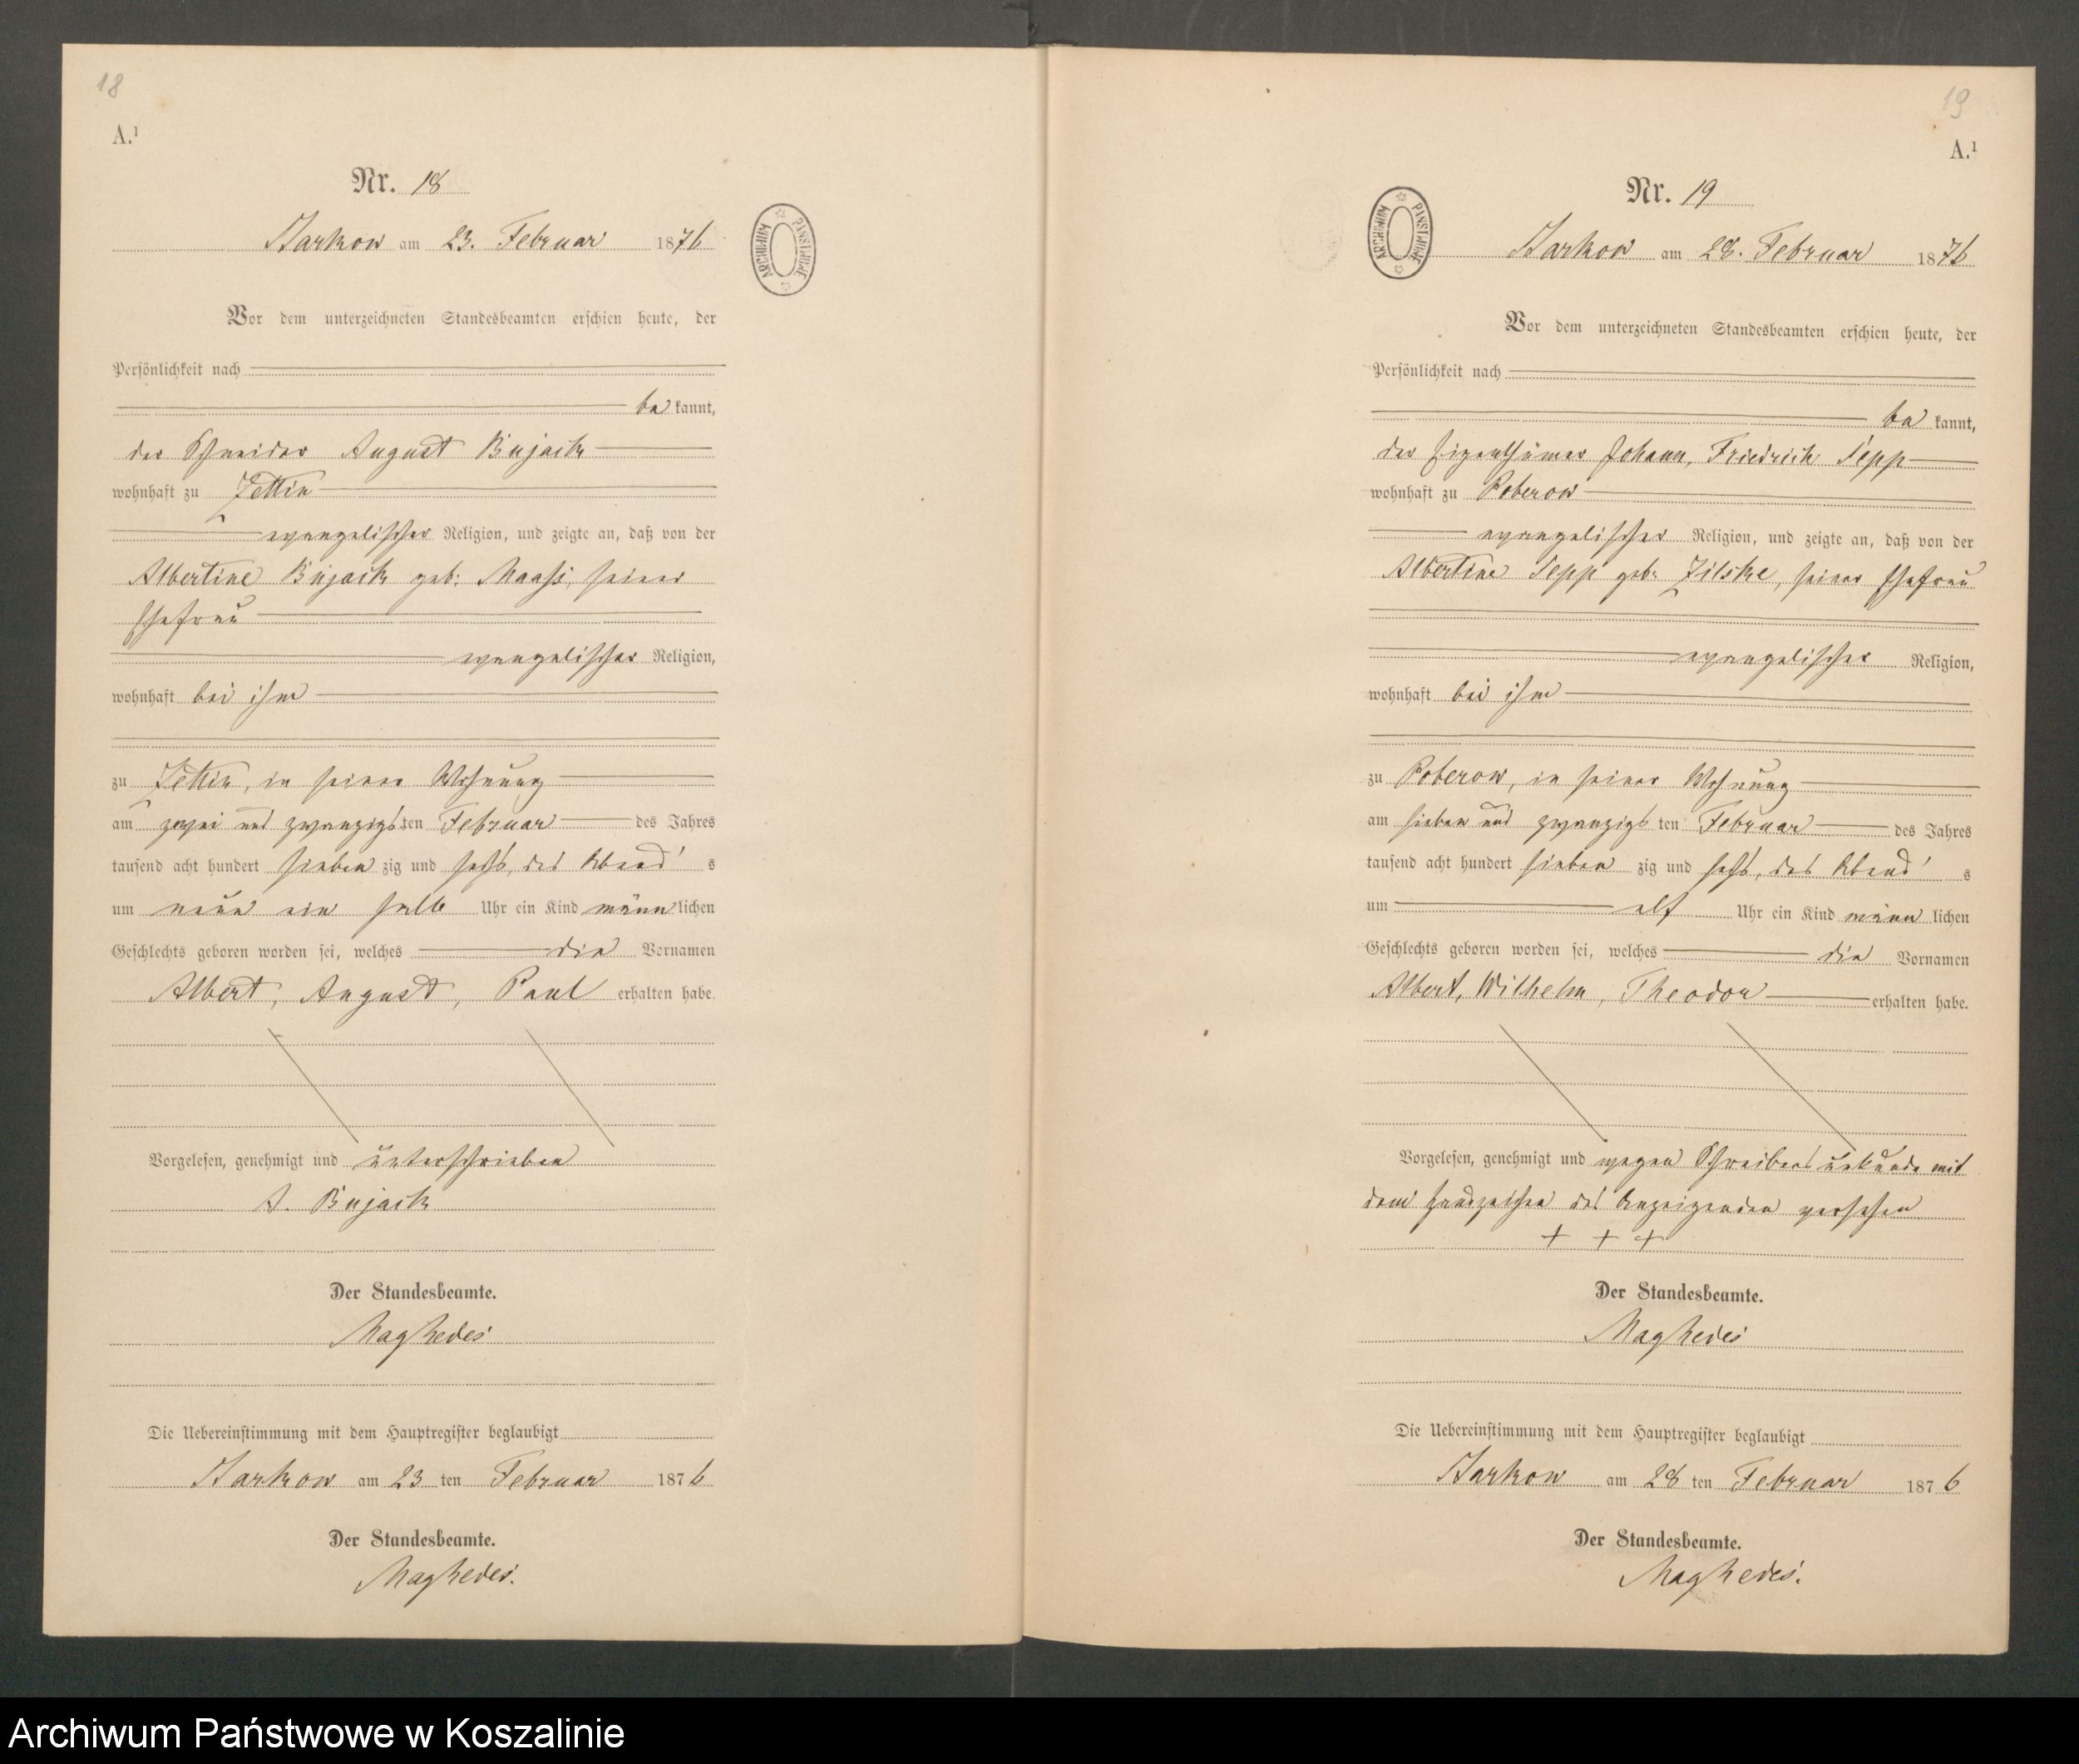 18
A.¹
Nr. 18
Starkow am 23. Februar 1876
ARCHIWUM PAŃSTWOWE
Vor dem unterzeichneten Standesbeamten erschien heute, der
Persönlichkeit nach
be kannt,
der Schneider August Bujack
wohnhaft zu Zettin
evangelischer Religion, und zeigte an, daß von der
Albertine Bujack geb: Maaß, seiner
Ehefrau
evangelischer Religion,
wohnhaft bei ihm
zu Zettin, in seiner Wohnung
am zwei und zwanzigsten Februar des Jahres
tausend acht hundert sieben zig und sechs, des Abend s
um neun ein halb Uhr ein Kind männlichen
Geschlechts geboren worden sei, welches die Vornamen
Albert, August, Paul erhalten habe
Vorgelesen, genehmigt und unterschrieben
A. Bujack
Der Standesbeamte.
Die Uebereinstimmung mit dem Hauptregister beglaubigt
Starkow am 23 ten Februar 1876
Der Standesbeamte.
19
A.¹
Nr. 19
ARCHIWUM PAŃSTWOWE
Starkow am 28. Februar 1876
Vor dem unterzeichneten Standesbeamten erschien heute, der
Persönlichkeit nach
be kannt,
der Eigenthümer Johann, Friedrich Sepp
wohnhaft zu Poberow
evangelischer Religion, und zeigte an, daß von der
Albertine Sepp geb: Zilske, seiner Ehefrau
evangelischer Religion,
wohnhaft bei ihm
zu Poberow, in seiner Wohnung
am sieben und zwanzigs ten Februar des Jahres
tausend acht hundert sieben zig und sechs, des Abend s
um elf Uhr ein Kind männ lichen
Geschlechts geboren worden sei, welches die Vornamen
Albert, Wilhelm, Theodor erhalten habe.
Vorgelesen, genehmigt und wegen Schreibens unkunde mit
dem Handzeichen des Anzeigenden versehen
+ + +
Der Standesbeamte.
Die Uebereinstimmung mit dem Hauptregister beglaubigt
Starkow am 28 ten Februar 1876
Der Standesbeamte.
Archiwum Państwowe w Koszalinie